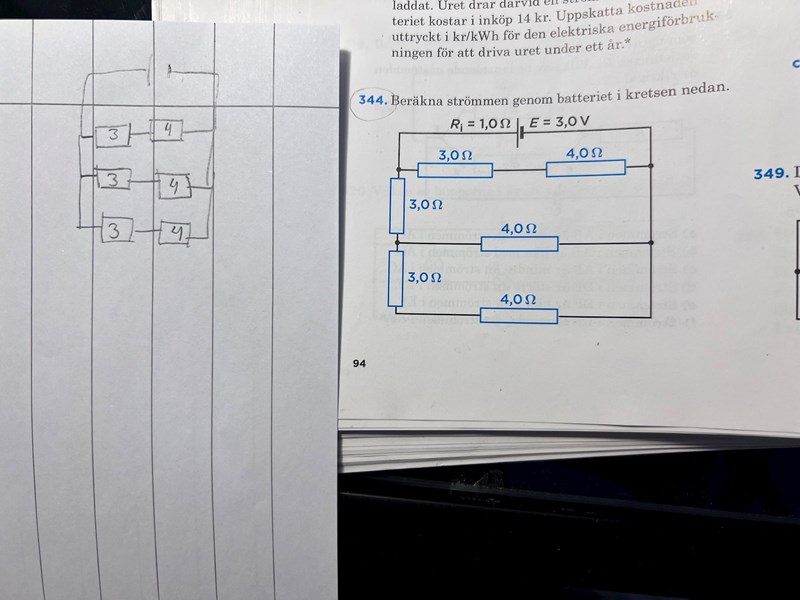 laddat. Uret drar därvid en
teriet kostar i inköp 14 kr. Uppskatta kostnaden
uttryckt i kr/kWh för den elektriska energiförbruk-
ningen för att driva uret under ett år.*
344. Beräkna strömmen genom batteriet i kretsen nedan.
Ri = 1,0 Ω E = 3,0 V
3,0 Ω 4,0 Ω
3,0 Ω
4,0 Ω
3,0 Ω
4,0 Ω
94
349.
3 4
3 4
3 4